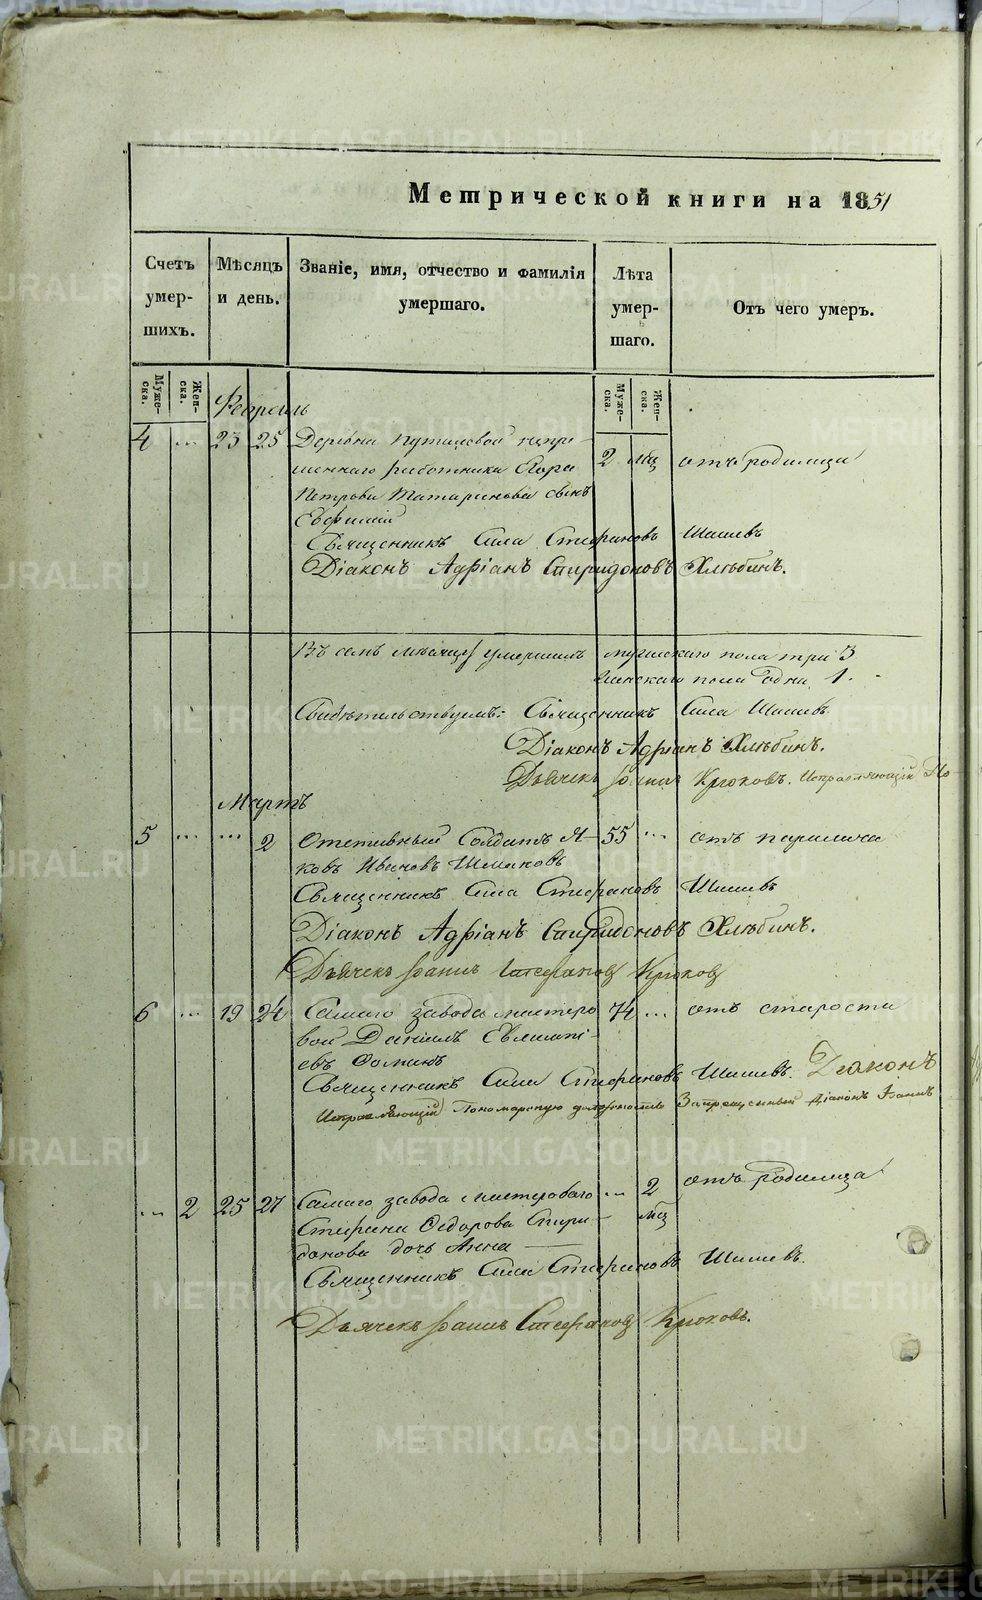 Метрической книги на 1851
Счетъ умершихъ.
Мѣсяцъ и день.
Званіе, имя, отчество и фамилія умершаго.
Лѣта умершаго.
Отъ чего умеръ.
Мужеска.
Женска.
Мужеска.
Женска.
Февраль
4 ... 23 25 Деревни Путиловой непре- 2 мц отъ родимца
меннаго работника Егора
Петрова Татаринова сынъ
Евфимій
Священникъ Сила Стефановъ Шишевъ
Діаконъ Адріанъ Спиридоновъ Хлѣбинъ.
Въ семъ мѣсяцѣ умершихъ мужескаго пола три 3
женскаго пола одна 1.
Свидѣтельствуемъ: Священникъ Сила Шишевъ
Діаконъ Адріанъ Хлѣбинъ.
Дьячекъ Іоаннъ Крюковъ. Исправляющій По-
Мартъ
5 ... ... 2 Отставный Солдатъ Я- 55 ... отъ паралича
ковъ Ивановъ
Священникъ Сила Стефановъ Шишевъ
Діаконъ Адріанъ Спиридоновъ Хлѣбинъ.
Дьячекъ Іоаннъ Стефановъ Крюковъ
6 ... 19 24 Самаго завода мастеро 74 ... отъ старости
вой Даніилъ
евъ
Священникъ Сила Стефановъ Шишевъ. Діаконъ
Исправляющій Пономарскую должность Запрещенный Діаконъ Іоаннъ
... 2 25 27 Самаго завода мастероваго ... 2 мц отъ родимца
Стефана Федорова Спири-
донова дочь Анна
Священникъ Сила Стефановъ Шишевъ.
Дьячекъ Іоаннъ Стефановъ Крюковъ.
METRIKI.GASO-URAL.RU